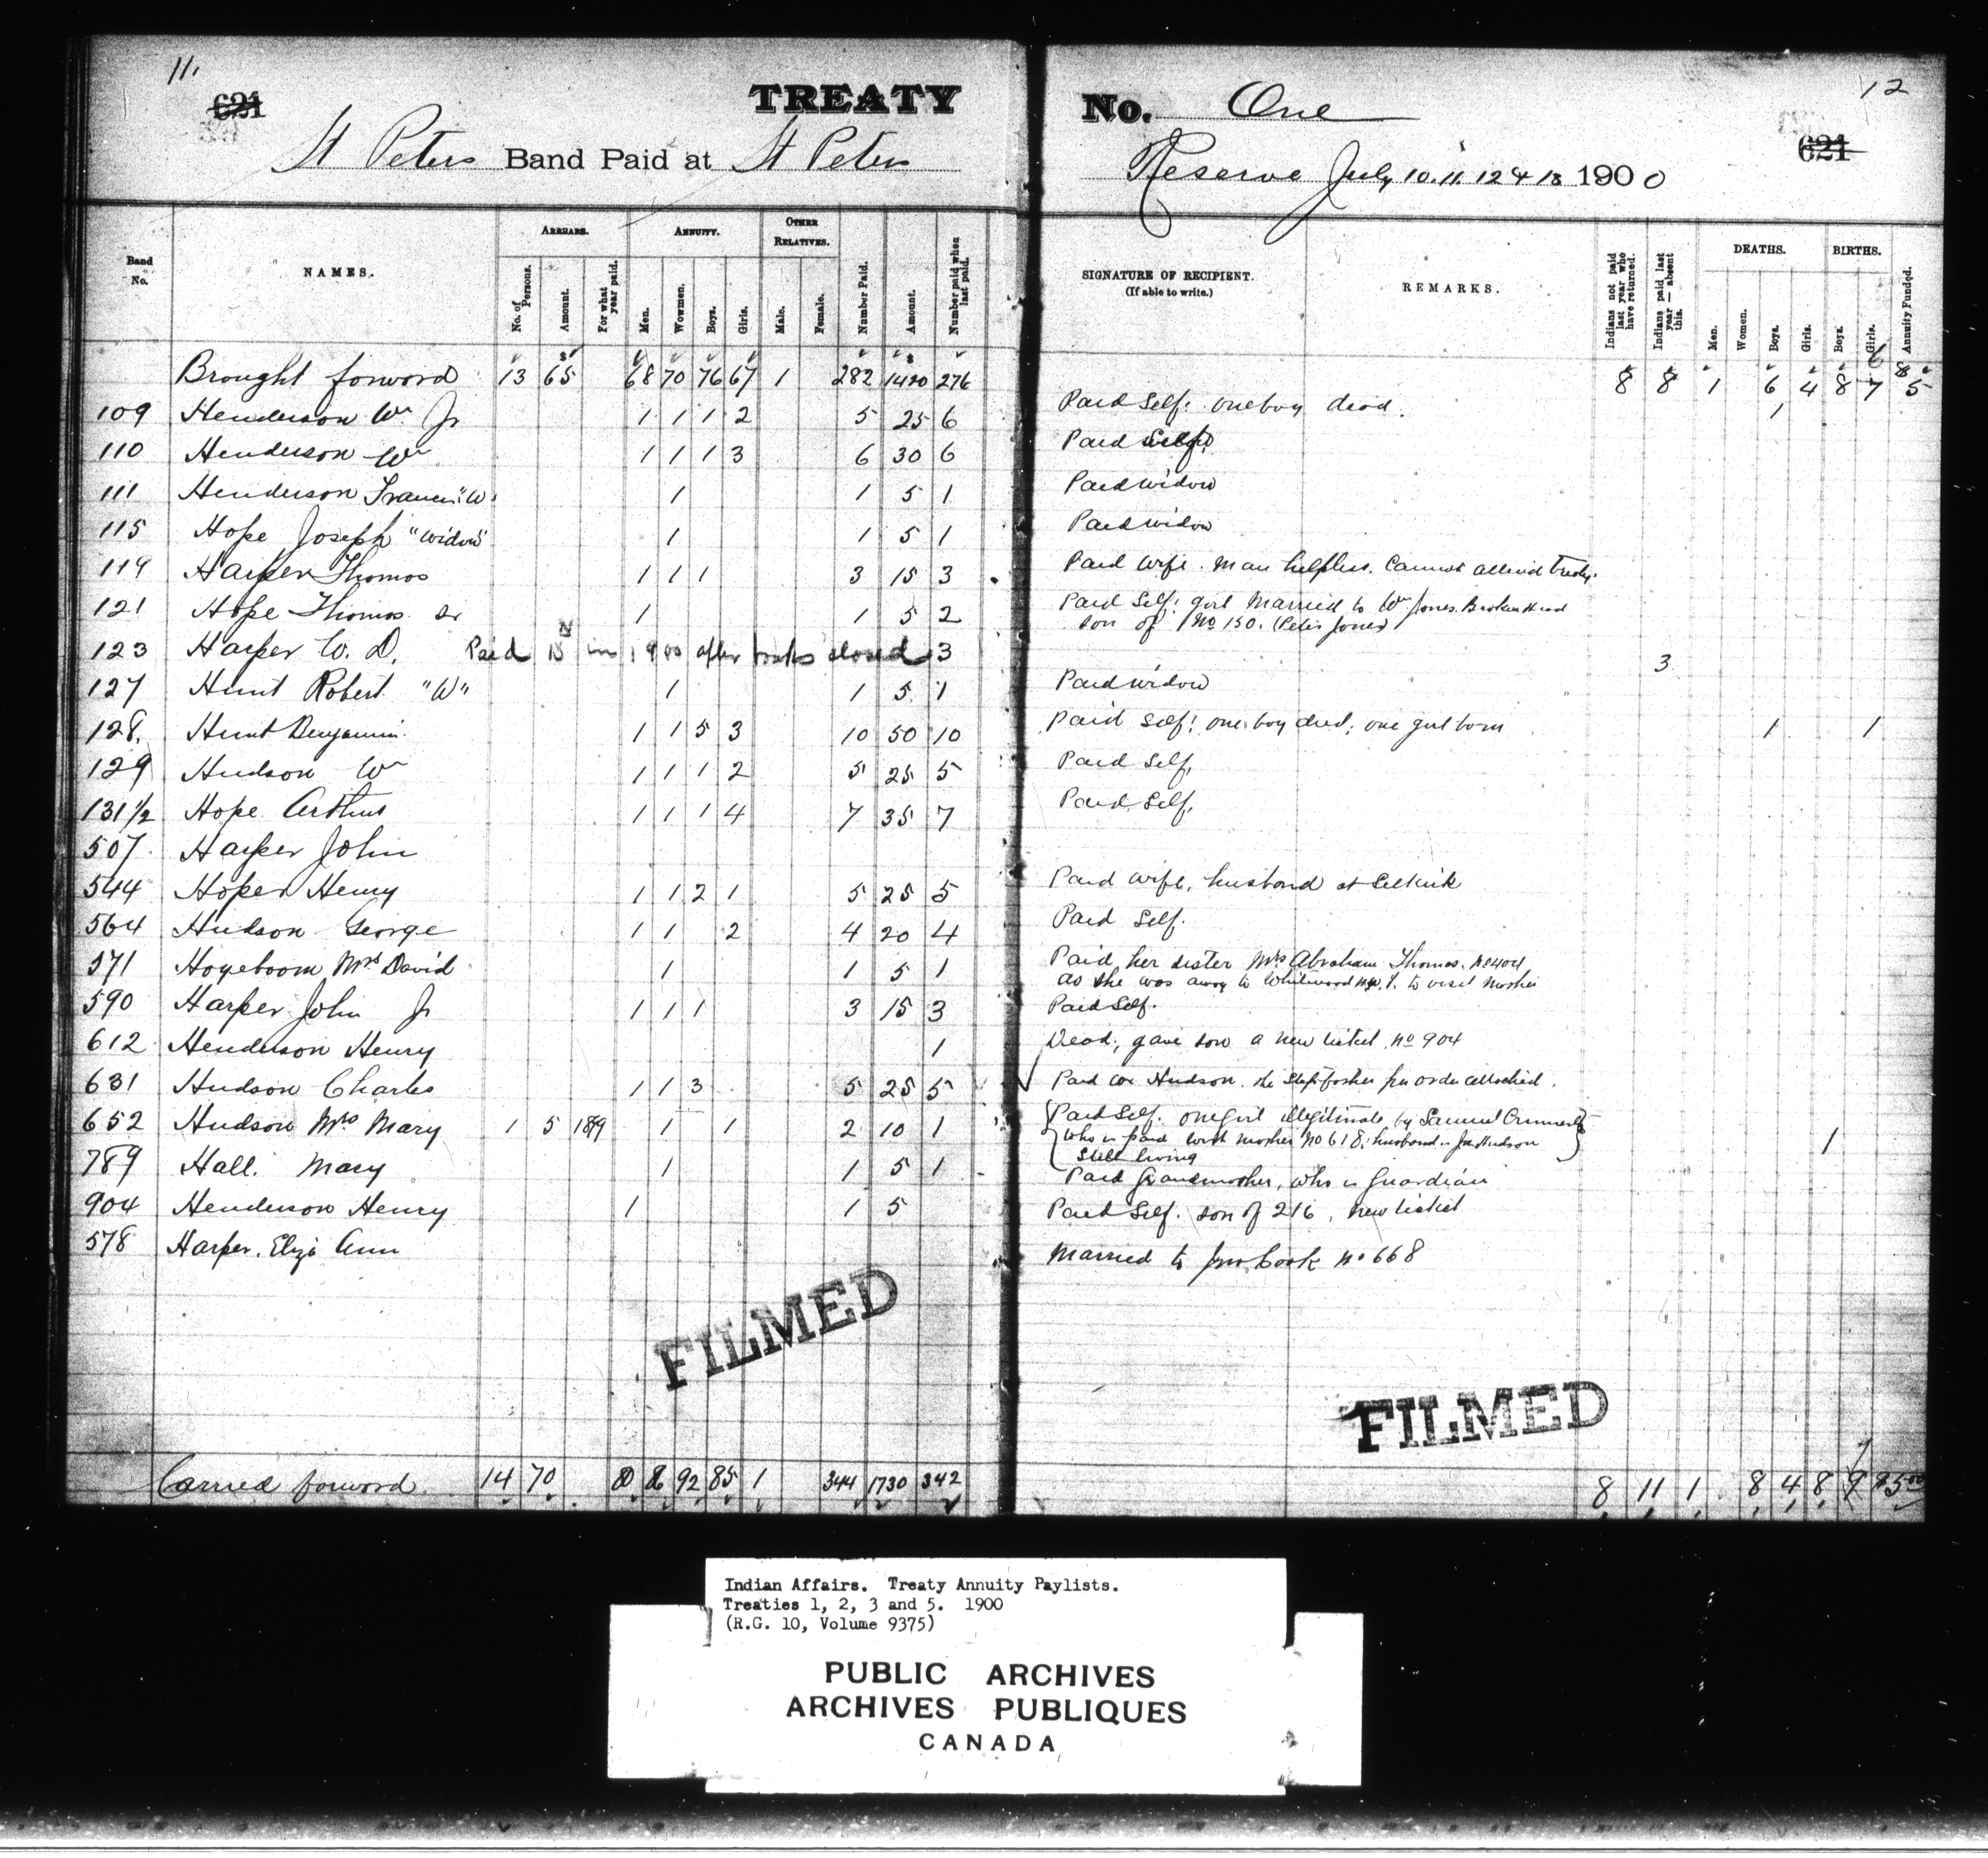 11.
621
TREATY
St Peters Band Paid at St Peters
No. One
12
621
Reserve July 10.11.12 & 13 1900
Band No.
NAMES.
ARREARS.
No. of Persons.
Amount.
For what year paid.
ANNUITY.
Men.
Wowmen.
Boys.
Girls.
OTHER RELATIVES.
Male.
Female.
Number Paid.
Amount.
Number paid when last paid.
SIGNATURE OF RECIPIENT.
(If able to write.)
REMARKS.
Indians not paid last year who have returned.
Indians paid last year — absent this.
DEATHS.
Men.
Women.
Boys.
Girls.
BIRTHS.
Boys.
Girls.
Annuity Funded.
Brought forward 13 65 68 70 76 67 1 282 1420 276 8 8 1 6 4 8 7 5
109 Henderson Wm Jr 1 1 1 2 5 25 6 Paid Self. one boy dead. 1
110 Henderson Wm 1 1 1 3 6 30 6 Paid Self
111 Henderson Francis "W" 1 1 5 1 Paid widow
115 Hope Joseph "widow" 1 1 5 1 Paid widow
119 Harper Thomas 1 1 1 3 15 3 Paid wife. Man helpless. Cannot attend treaty.
121 Hope Thomas Sr 1 1 5 2 Paid Self. girl Married to Wm Jones. Broken Head
son of No 150. (Peter Jones)
123 Harper W. D. Paid 15 in 1900 after books closed 3 3
127 Hunt Robert "W" 1 1 5 1 Paid widow
128. Hunt Benjamin 1 1 5 3 10 50 10 Paid Self! one boy died; one girl born 1 1
129 Hudson Wm 1 1 1 2 5 25 5 Paid Self.
131½ Hope Arthur 1 1 1 4 7 35 7 Paid Self.
507 Harper John
544 Hoper Henry 1 1 2 1 5 25 5 Paid wife, husband at Selkirk
564 Hudson George 1 1 2 4 20 4 Paid Self.
571 Hogeboom Mrs David 1 1 5 1 Paid her sister Mrs Abraham Thomas. No 404
as she was away to Whitewood N.W.T. to visit mother
590 Harper John Jr 1 1 1 3 15 3 Paid Self.
612 Henderson Henry 1 Dead, gave son a new ticket no 904
631 Hudson Charles 1 1 3 5 25 5 Paid Wm Hudson. the Stepfather per order attached.
652 Hudson Mrs Mary 1 5 1899 1 1 2 10 1 Paid Self. one girl illegitimate by Samuel
who is paid with mother No 618. husband Hudson 1
still living
789 Hall. Mary 1 1 5 1 Paid Grandmother, who is Guardian
904 Henderson Henry 1 1 5 Paid Self. son of 216, new ticket
578 Harper. Eliza Ann Married to Jno Cook no 668
FILMED
FILMED
Carried forward 14 70 80 86 92 85 1 344 1730 342 8 11 1 8 4 8 9 5.00
Indian Affairs. Treaty Annuity Paylists.
Treaties 1, 2, 3 and 5. 1900
(R.G. 10, Volume 9375)
PUBLIC ARCHIVES
ARCHIVES PUBLIQUES
CANADA